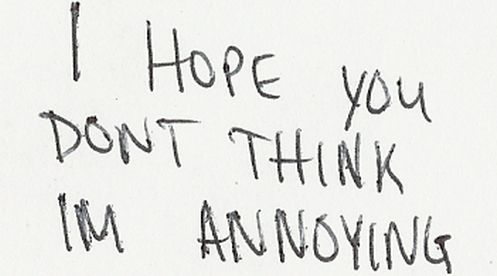 I HOPE YOU
DONT THINK
IM ANNOYING